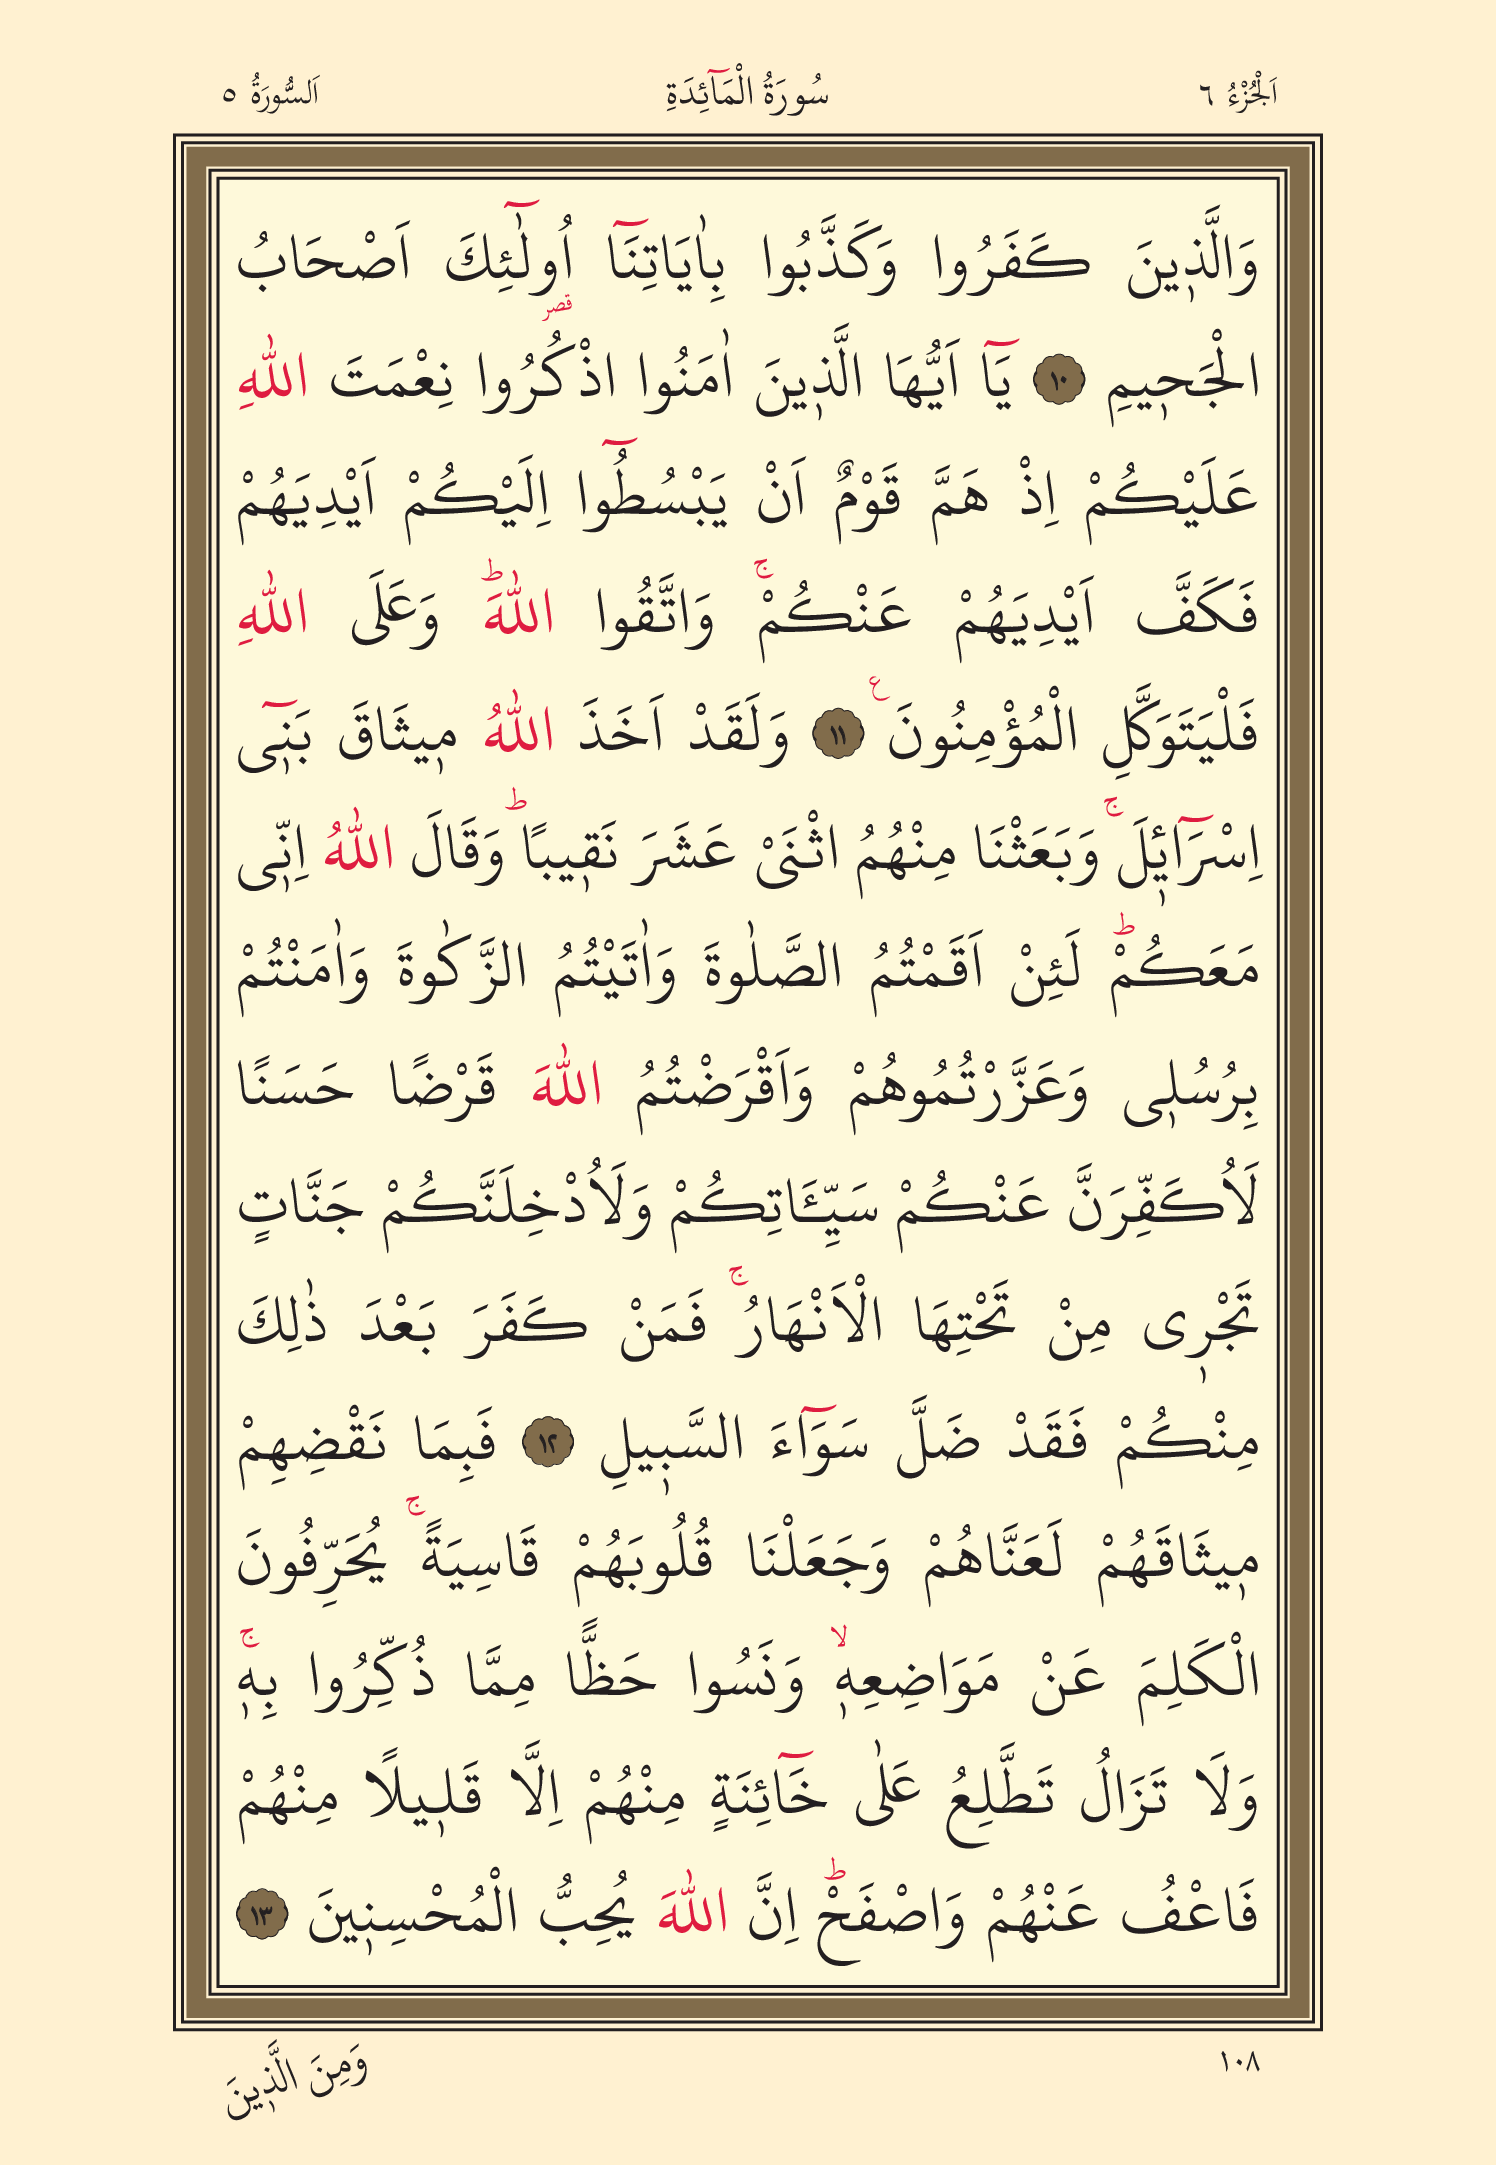 اَلْجُزْءُ ٦ سُورَةُ الْمَٓائِدَةِ اَلسُّورَةُ ٥
وَالَّذ۪ينَ كَفَرُوا وَكَذَّبُوا بِاٰيَاتِنَٓا اُو۬لٰٓئِكَ اَصْحَابُ
الْجَح۪يمِ ﴿١٠﴾ يَٓا اَيُّهَا الَّذ۪ينَ اٰمَنُوا اذْكُرُوا نِعْمَتَ اللّٰهِ
عَلَيْكُمْ اِذْ هَمَّ قَوْمٌ اَنْ يَبْسُطُٓوا اِلَيْكُمْ اَيْدِيَهُمْ
فَكَفَّ اَيْدِيَهُمْ عَنْكُمْۚ وَاتَّقُوا اللّٰهَۜ وَعَلَى اللّٰهِ
فَلْيَتَوَكَّلِ الْمُؤْمِنُونَ ع ﴿١١﴾ وَلَقَدْ اَخَذَ اللّٰهُ م۪يثَاقَ بَن۪ٓي
اِسْرَٓائ۪لَۚ وَبَعَثْنَا مِنْهُمُ اثْنَيْ عَشَرَ نَق۪يبًاۜ وَقَالَ اللّٰهُ اِنّ۪ي
مَعَكُمْۜ لَئِنْ اَقَمْتُمُ الصَّلٰوةَ وَاٰتَيْتُمُ الزَّكٰوةَ وَاٰمَنْتُمْ
بِرُسُل۪ي وَعَزَّرْتُمُوهُمْ وَاَقْرَضْتُمُ اللّٰهَ قَرْضًا حَسَنًا
لَاُكَفِّرَنَّ عَنْكُمْ سَيِّـَٔاتِكُمْ وَلَاُدْخِلَنَّكُمْ جَنَّاتٍ
تَجْر۪ي مِنْ تَحْتِهَا الْاَنْهَارُۚ فَمَنْ كَفَرَ بَعْدَ ذٰلِكَ
مِنْكُمْ فَقَدْ ضَلَّ سَوَٓاءَ السَّب۪يلِ ﴿١٢﴾ فَبِمَا نَقْضِهِمْ
م۪يثَاقَهُمْ لَعَنَّاهُمْ وَجَعَلْنَا قُلُوبَهُمْ قَاسِيَةًۚ يُحَرِّفُونَ
الْكَلِمَ عَنْ مَوَاضِعِه۪ۙ وَنَسُوا حَظًّا مِمَّا ذُكِّرُوا بِه۪ۚ
وَلَا تَزَالُ تَطَّلِعُ عَلٰى خَٓائِنَةٍ مِنْهُمْ اِلَّا قَل۪يلًا مِنْهُمْ
فَاعْفُ عَنْهُمْ وَاصْفَحْۜ اِنَّ اللّٰهَ يُحِبُّ الْمُحْسِن۪ينَ ﴿١٣﴾
١٠٨ وَمِنَ الَّذ۪ينَ